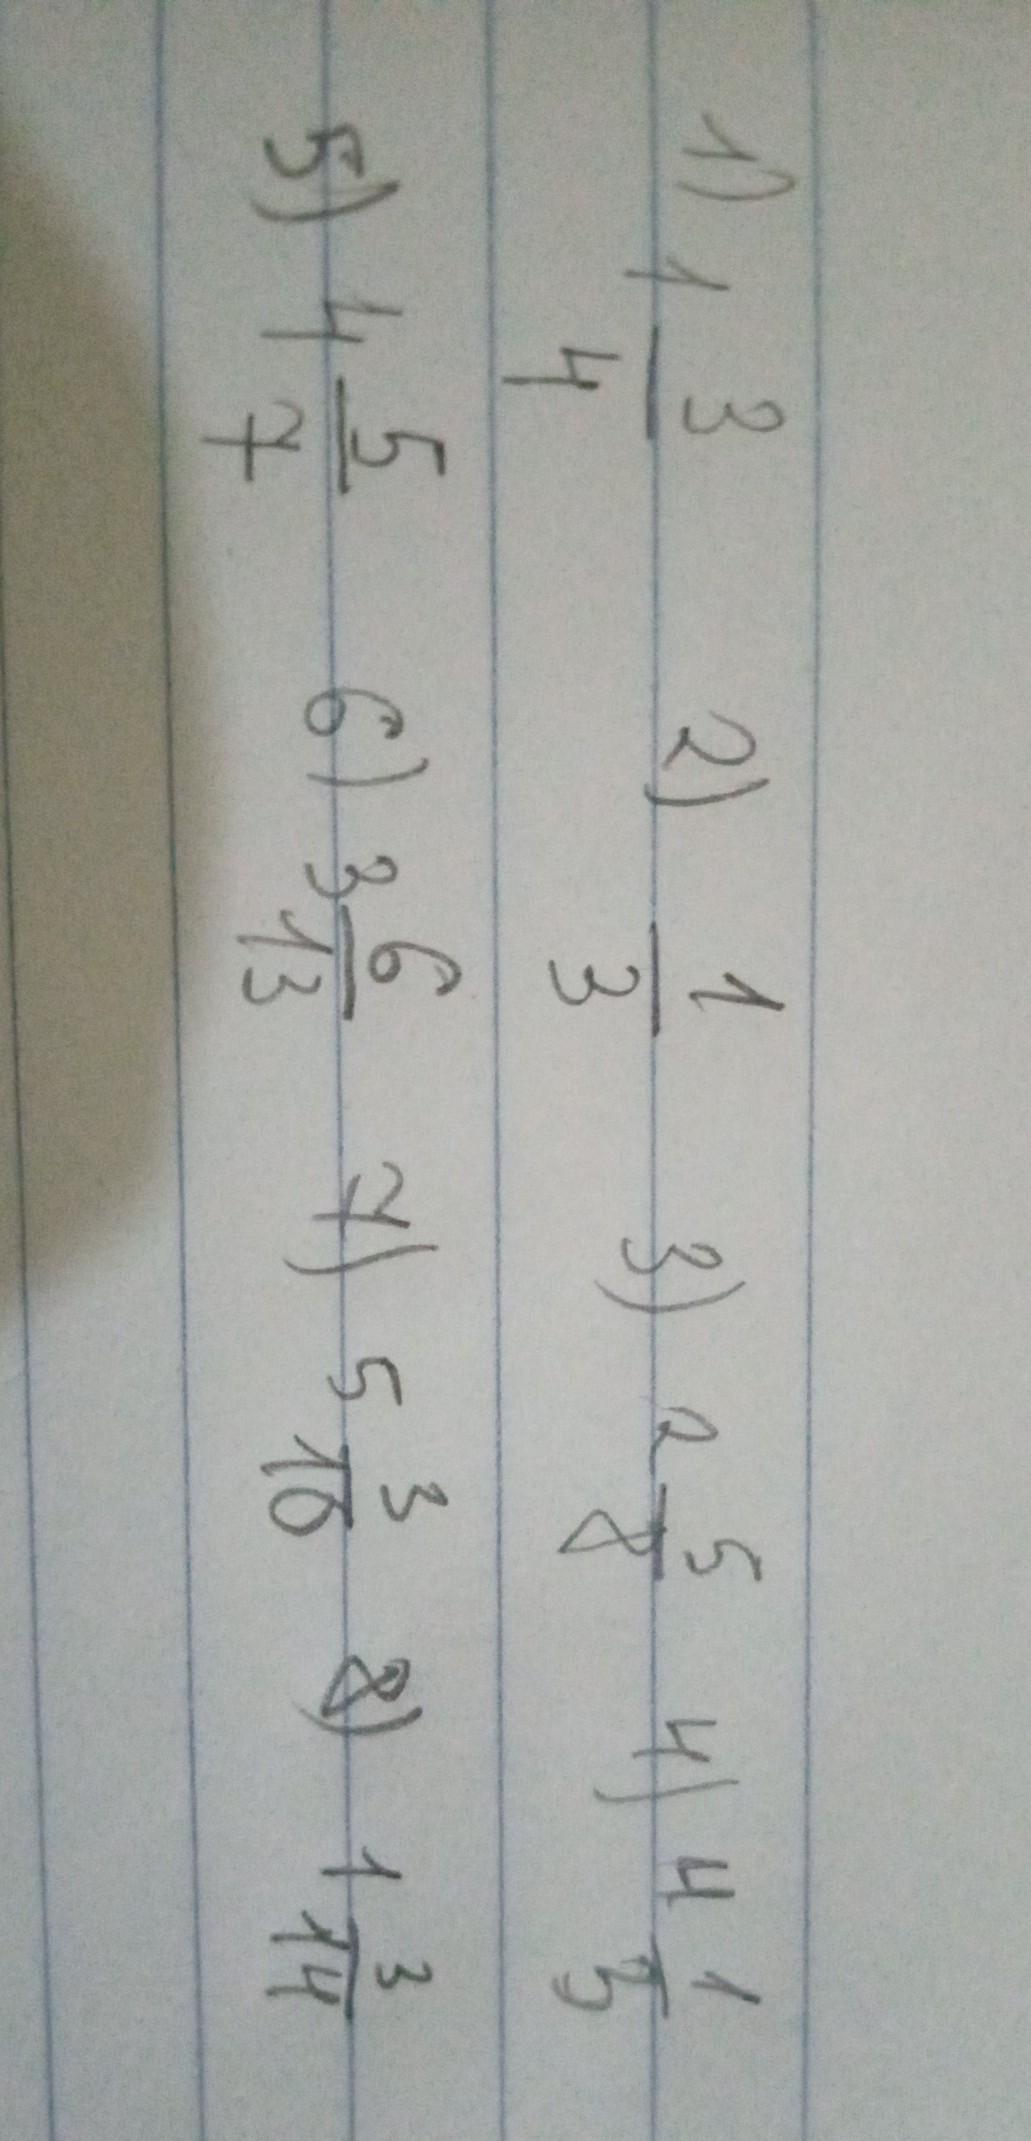 1) 1 3/4 2) 1/3 3) 2 5/8 4) 4 1/3
5) 4 5/7 6) 3 6/13 7) 5 3/10 8) 1 3/14